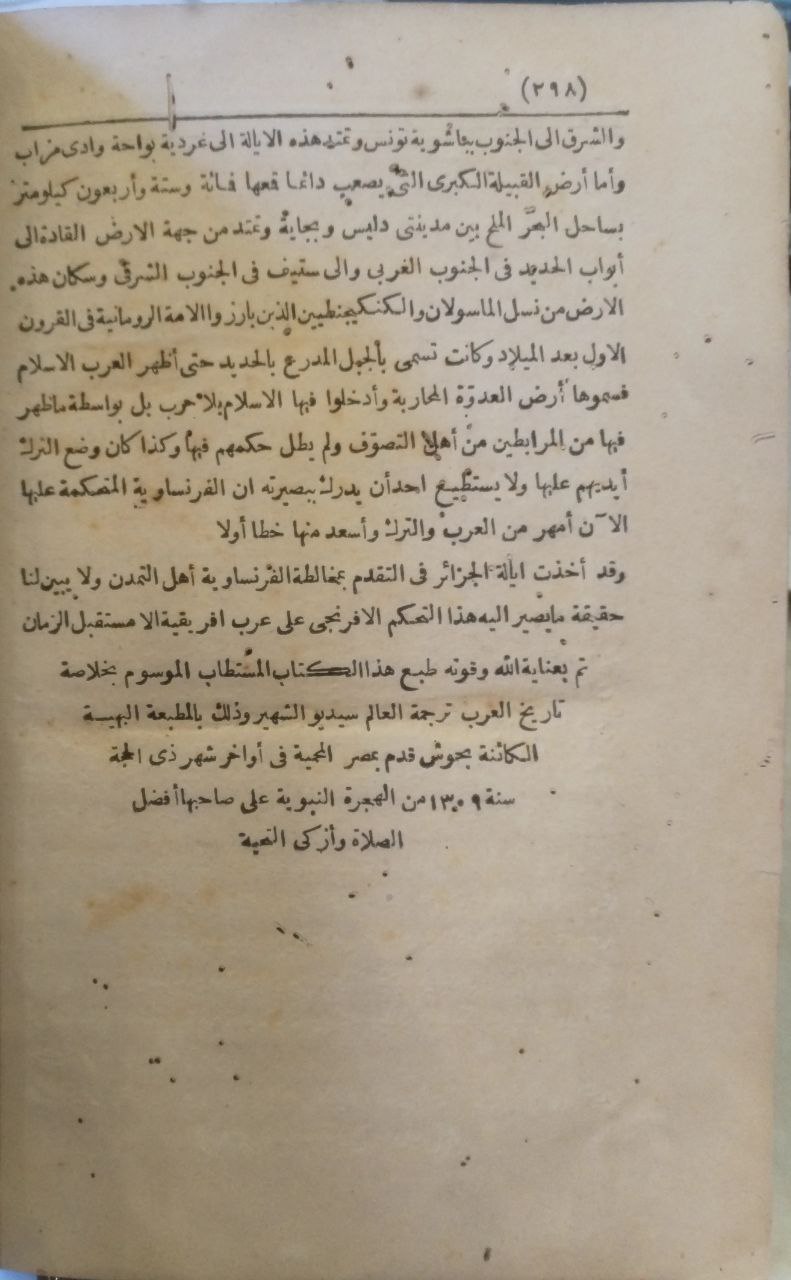 (٢٩٨)
والشرق الى الجنوب بباشوية تونس وتمتد هذه الايالة الى غردية بواحة وادى مزاب
وأما أرض القبيلة الكبرى التى يصعب دائما قمعها فمائة وستة وأربعون كيلومتر
بساحل البحر الملح بين مدينتى دليس وبجاية وتمتد من جهة الارض القادة الى
أبواب الحديد فى الجنوب الغربى والى ستيف فى الجنوب الشرقى وسكان هذه
الارض من نسل الماسولان والكنكيجنطيين الذين بارزوا الامة الرومانية فى القرون
الاول بعد الميلاد وكانت تسمى بالجبل المدرع بالحديد حتى أظهر العرب الاسلام
فسموها أرض العدوّة المحاربة وأدخلوا فيها الاسلام بلا حرب بل بواسطة ماظهر
فيها من المرابطين من أهل التصوّف ولم يطل حكمهم فيها وكذا كان وضع الترك
أيديهم عليها ولا يستطيع احد أن يدرك ببصيرته ان الفرنساوية المتحكمة عليها
الآن أمهر من العرب والترك وأسعد منها خطا أولا
وقد أخذت ايالة الجزائر فى التقدم بمخالطة الفرنساوية أهل التمدن ولا يبين لنا
حقيقة مايصير اليه هذا التحكم الافرنجى على عرب افريقية الا مستقبل الزمان
تم بعناية الله وقوته طبع هذا الكتاب المستطاب الموسوم بخلاصة
تاريخ العرب ترجمة العالم سيديو الشهير وذلك بالمطبعة البهية
الكائنة بحوش قدم بمصر المحمية فى أواخر شهر ذى الحجة
سنة ١٣٠٩ من الهجرة النبوية على صاحبها أفضل
الصلاة وأزكى التحية